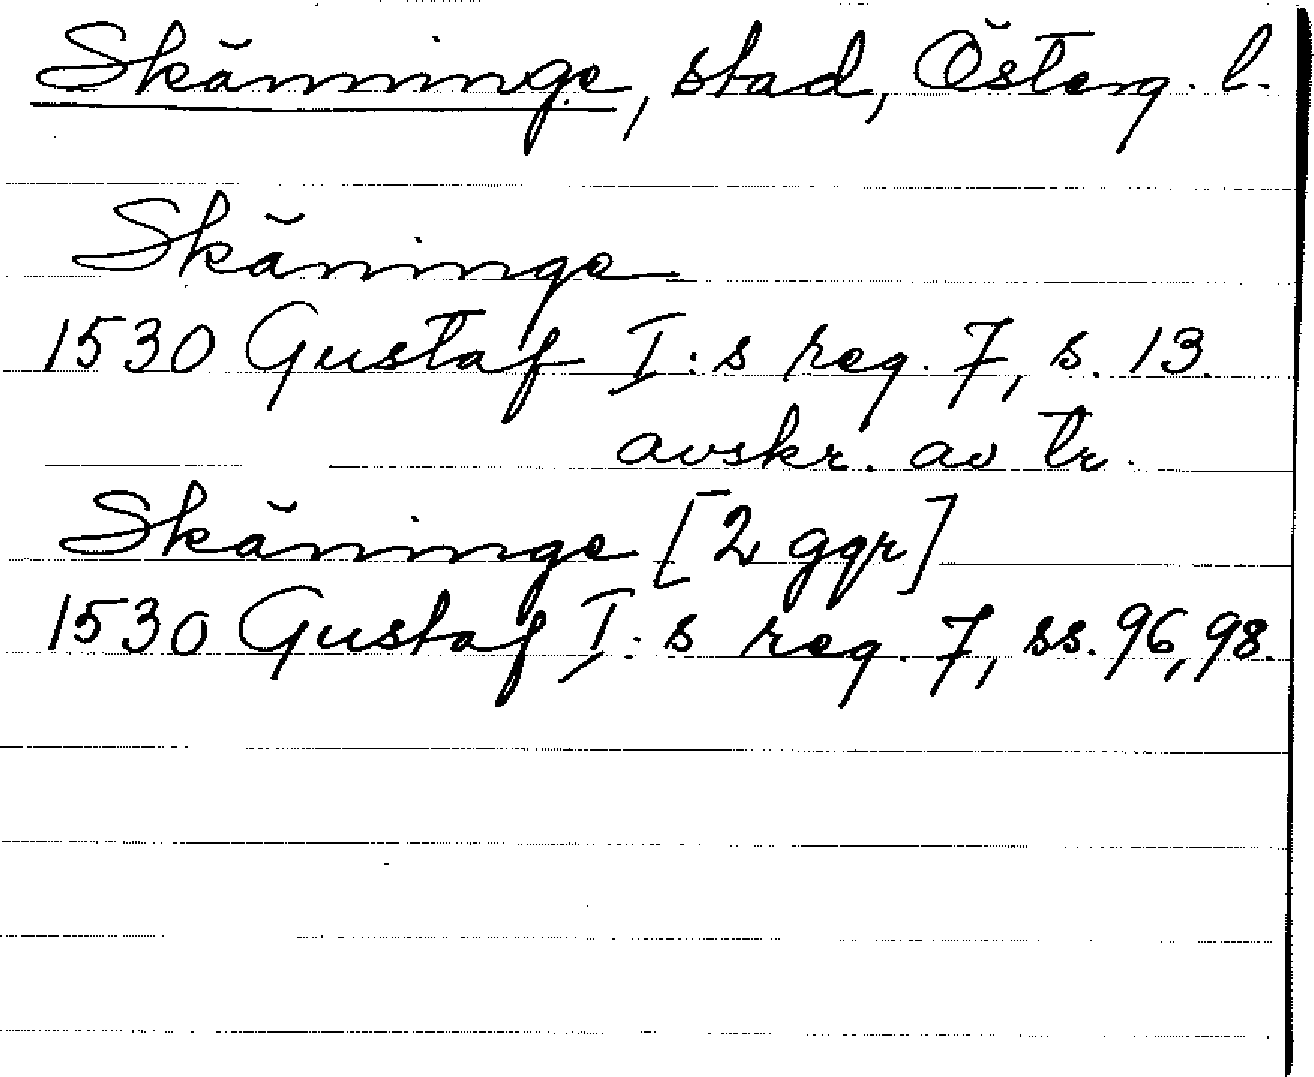 Skänninge, stad, Österg. l.
Skäninge
1530 Gustaf I:s reg. 7, s. 13.
avskr. av tr.
Skäninge [2 ggr]
1530 Gustaf I:s reg. 7, ss. 96, 98.